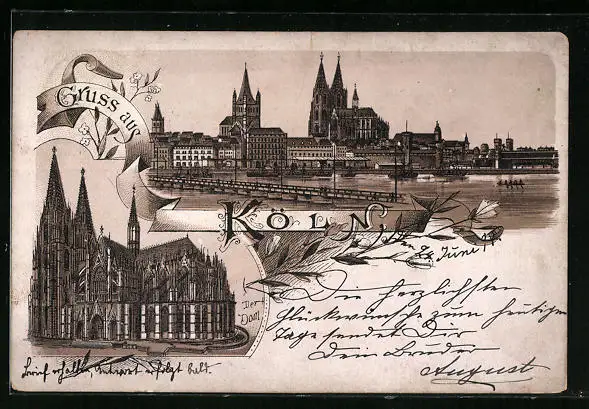 Gruss aus
KÖLN,
Der
Dom
den 24. Juni
Die herzlichsten
Glückwünsche zum heutigen
Tage sendet Dir
Dein Bruder
August
Brief erhalten, Antwort erfolgt bald.